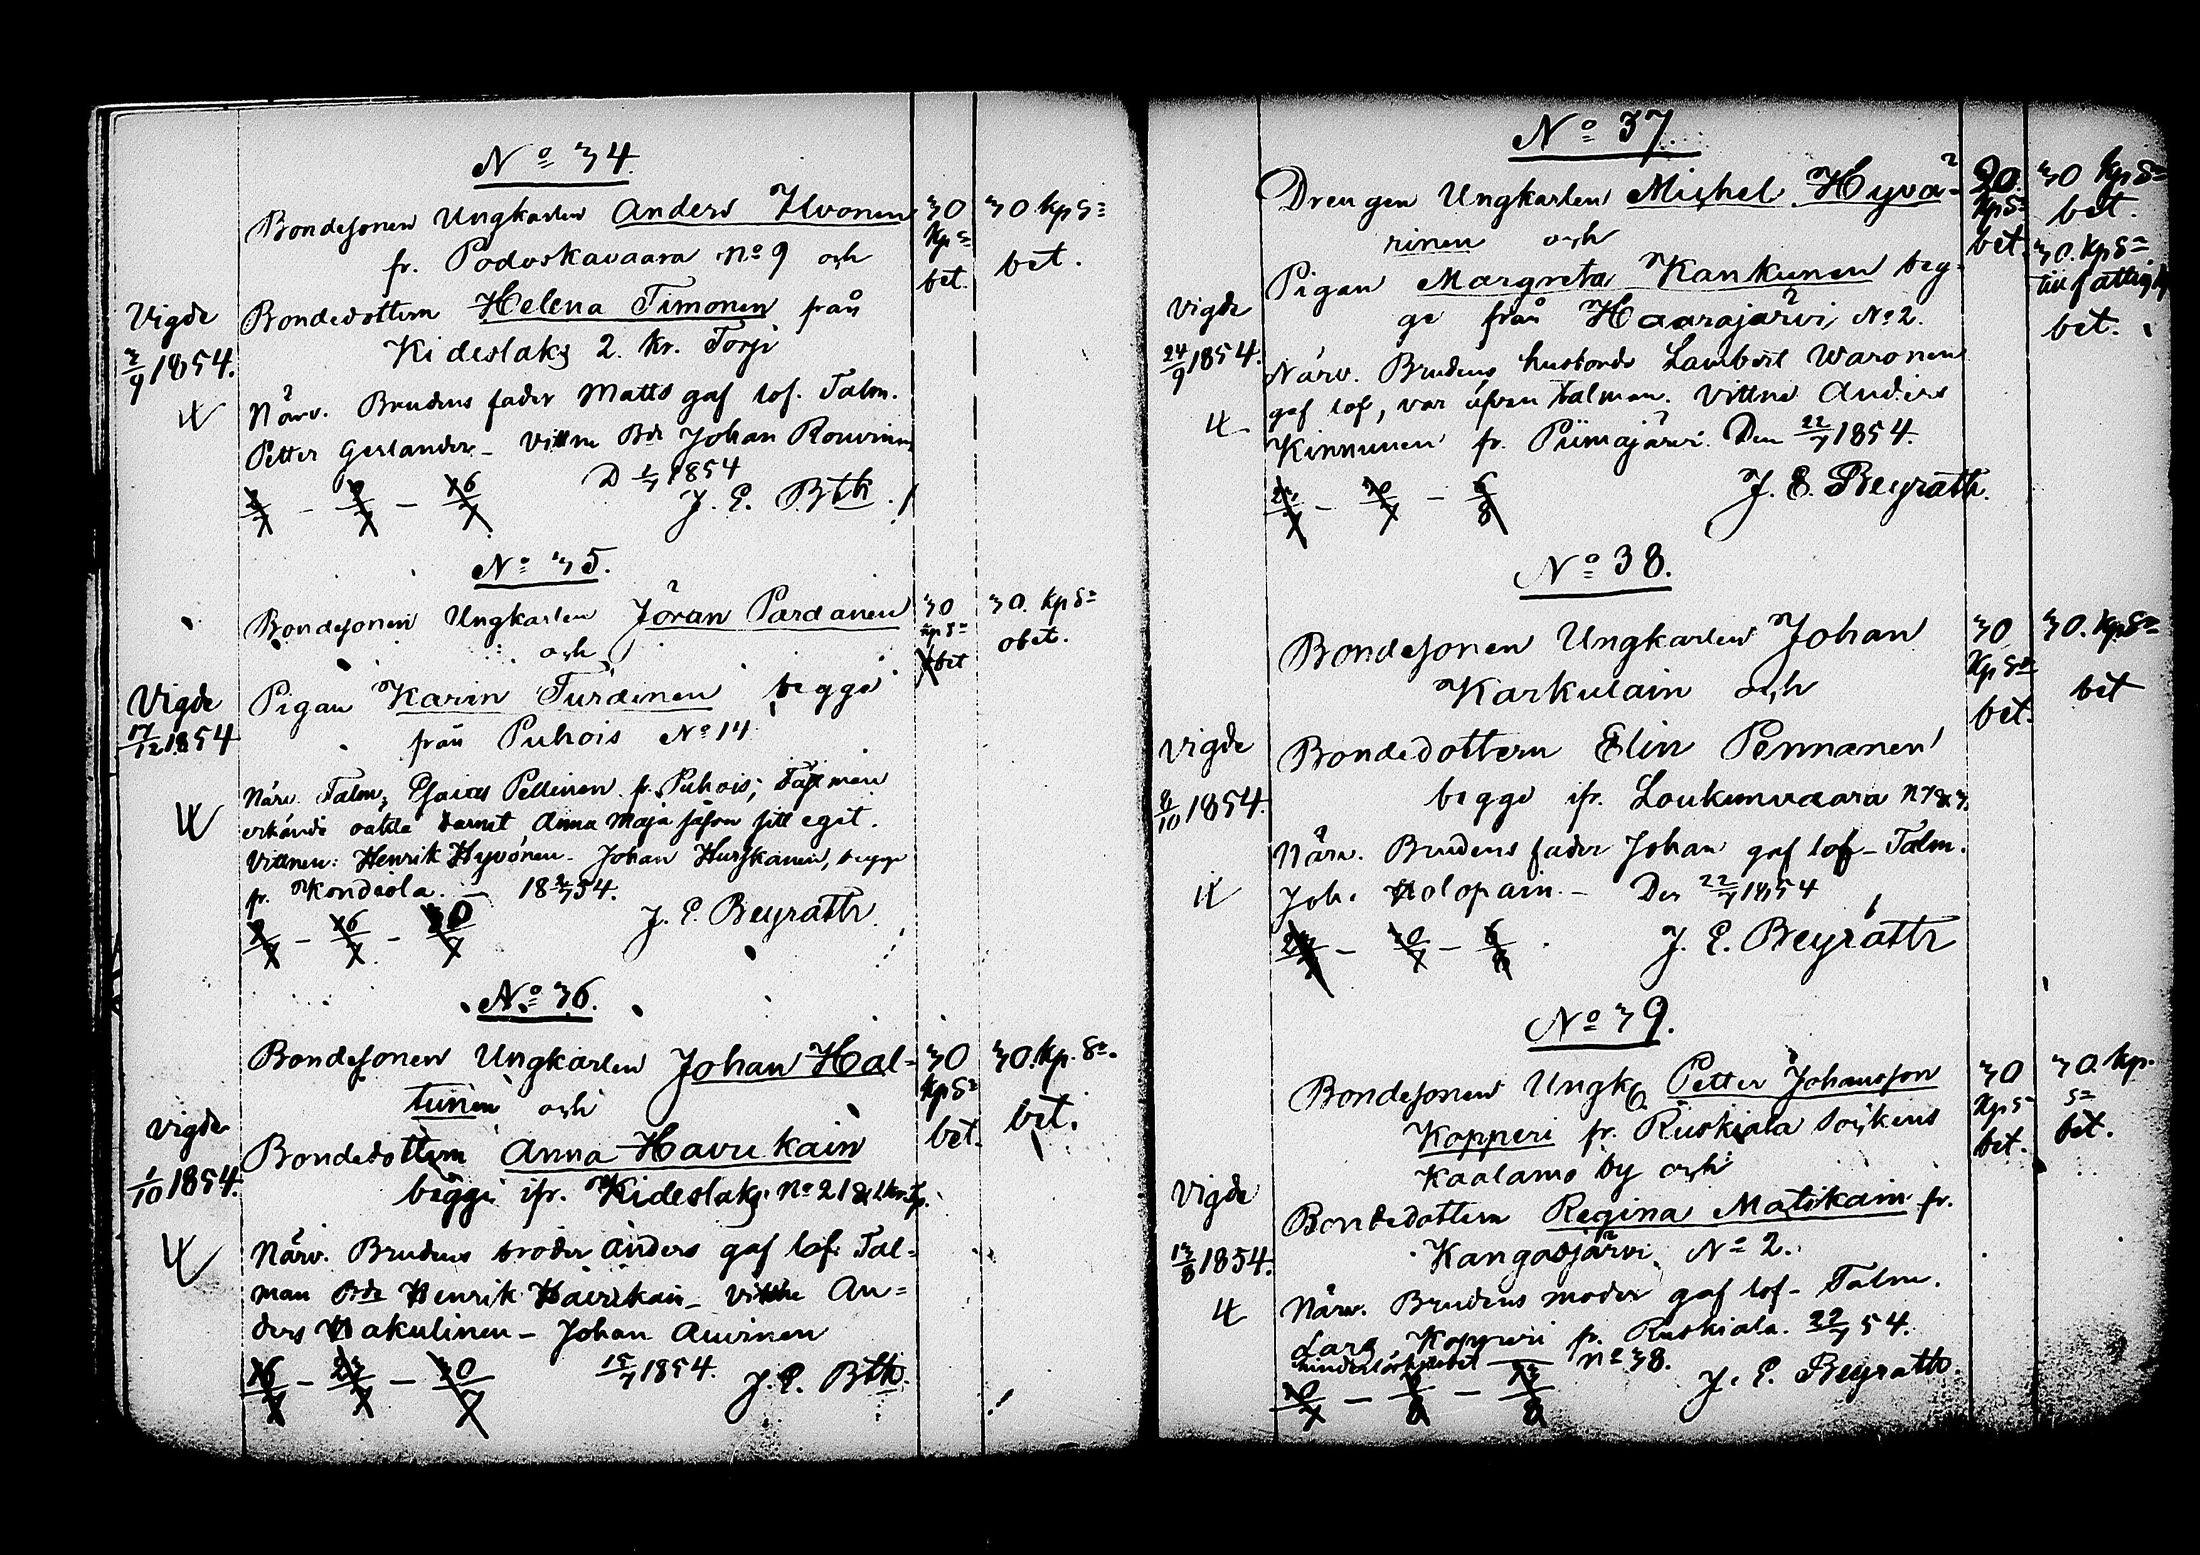 No 34.
Bondesonen Ungkarlen Anders Ilvonen
fr. Podoskavaara No 9 och
Bondedottern Helena Timonen från
Kideslaks 2. kr. Torp
Närv. Brudens fader Matts gaf lof. Talm.
Petter Gerlander - Vittne Bdr Johan Rouvinen
D 1/7 1854
J. E. Bth.
Vigde
3/9 1854.
30 Kp S=
bet.
30 kp S=
bet.
No 35.
Bondesonen Ungkarlen Jöran Pardanen
och
Pigan Karin Turdinen begge
från Puhois No 14
Närv. Talm. Esaias Pellinen fr. Puhois;
erkände barnet Anna Maja såsom sitt eget.
Vittnen: Henrik Hyvönen - Johan Hurskanen, begge
fr. Kondiola. - 18 54.
J. E. Beyrath.
Vigde
17/12 1854
30
kp S=
bet
30. kp S=
obet.
No 36.
Bondesonen Ungkarlen Johan Hal=
tunen och
Bondedottern Anna Havukain
begge ifr. Kideslaks No 21 &
Närv. Brudens broder Anders gaf lof. Tal=
man Bdr Henrik Havukain - vittne An=
ders Wakulinen - Johan Auvinen
16/7 - 23/7 - 30/7
15/7 1854. J. E. Bth.
Vigde
1/10 1854.
30
kp S=
bet.
30. kp. S=.
bet.
No 37.
Drengen Ungkarlen Michel Hyvä=
rinen och
Pigan Margreta Kankunen beg-
ge från Haarajärvi No 2.
Närv. Brudens husbonde Lambert Waronen
gaf lof, var äfven talman. Vittne Anders
Kinnunen fr. Piimajärvi. Den 22/7 1854.
J. E. Beyrath.
Vigde
24/9 1854.
30.
Kp S=
bet.
30 kp S=
bet.
30. kp S=
till fattig
bet.
No 38.
Bondesonen Ungkarlen Johan
Karkulain och
Bondedottern Elin Pennanen
begge ifr. Loukunvaara N 7 & 3.
Närv. Brudens fader Johan gaf lof - Talm.
Joh. Holopain. - Den 22/7 1854
23/7 - 30/7 - 6/8
J. E. Beyrath
Vigde
8/10 1854.
30
kp S=
bet.
30. kp S=
bet
No 39.
Bondesonen Ungk. Petter Johansson
Kopperi fr. Ruskiala sockens
Kaalamo by och
Bondedottern Regina Matikain fr.
Kangasjärvi No 2.
Närv. Brudens moder gaf lof - Talm.
Lars Kopperi fr. Ruskiala. 22/7 54.
No 38.
30/7 - 6/8 - 13/8
J. E. Beyrath.
Vigde
13/8 1854.
30
Kp S=
bet.
30. kp.
S=
bet.